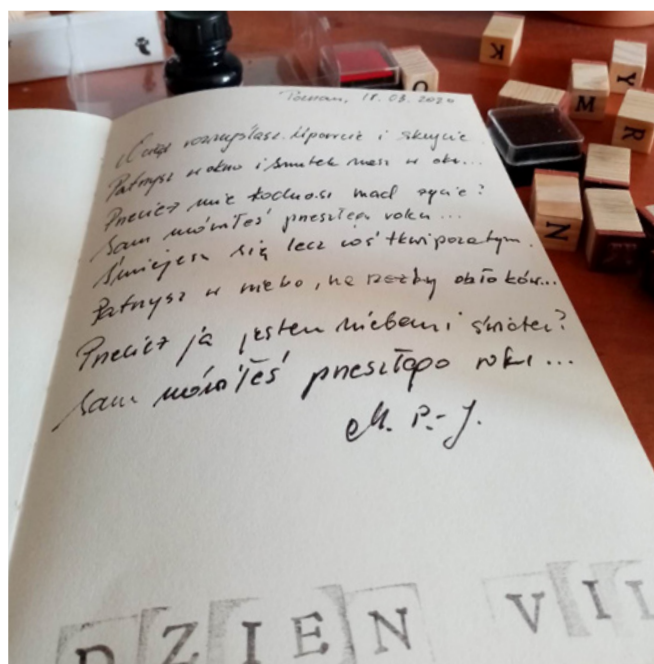 Poznań, 18.03.2020
Ciągle rozmyślasz. Uparcie i skrycie.
Patrzysz w okno i smutek masz w oku...
Przecież mnie kochasz nad życie?
Sam mówiłeś przeszłego roku...
Śmiejesz się lecz coś tkwi poza tym.
Patrzysz w niebo, na rzeźby obłoków...
Przecież ja jestem niebem i światem?
Sam mówiłeś przeszłego roku...
M. P.-J.
DZIEN VII
K
O
Y
M
R
N